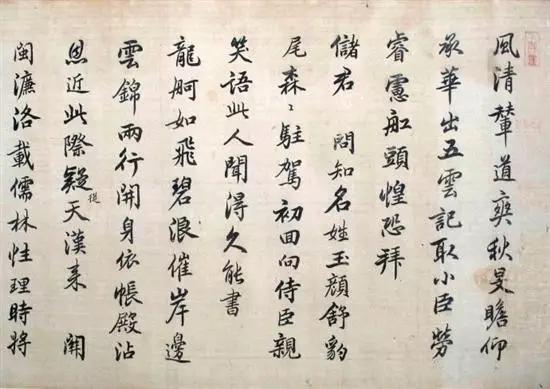 風清輦道爽秋旻瞻仰
承華出五雲記取小臣勞
睿慮舡頭惶恐拜
儲君 問知名姓玉顏舒豹
尾森〻駐駕初回向侍臣親
笑語此人聞得久能書
龍舸如飛碧浪催岸邊
雲錦兩行開身依帳殿沾
恩近此際疑從天漢來 関
閩濂洛載儒林性理時將